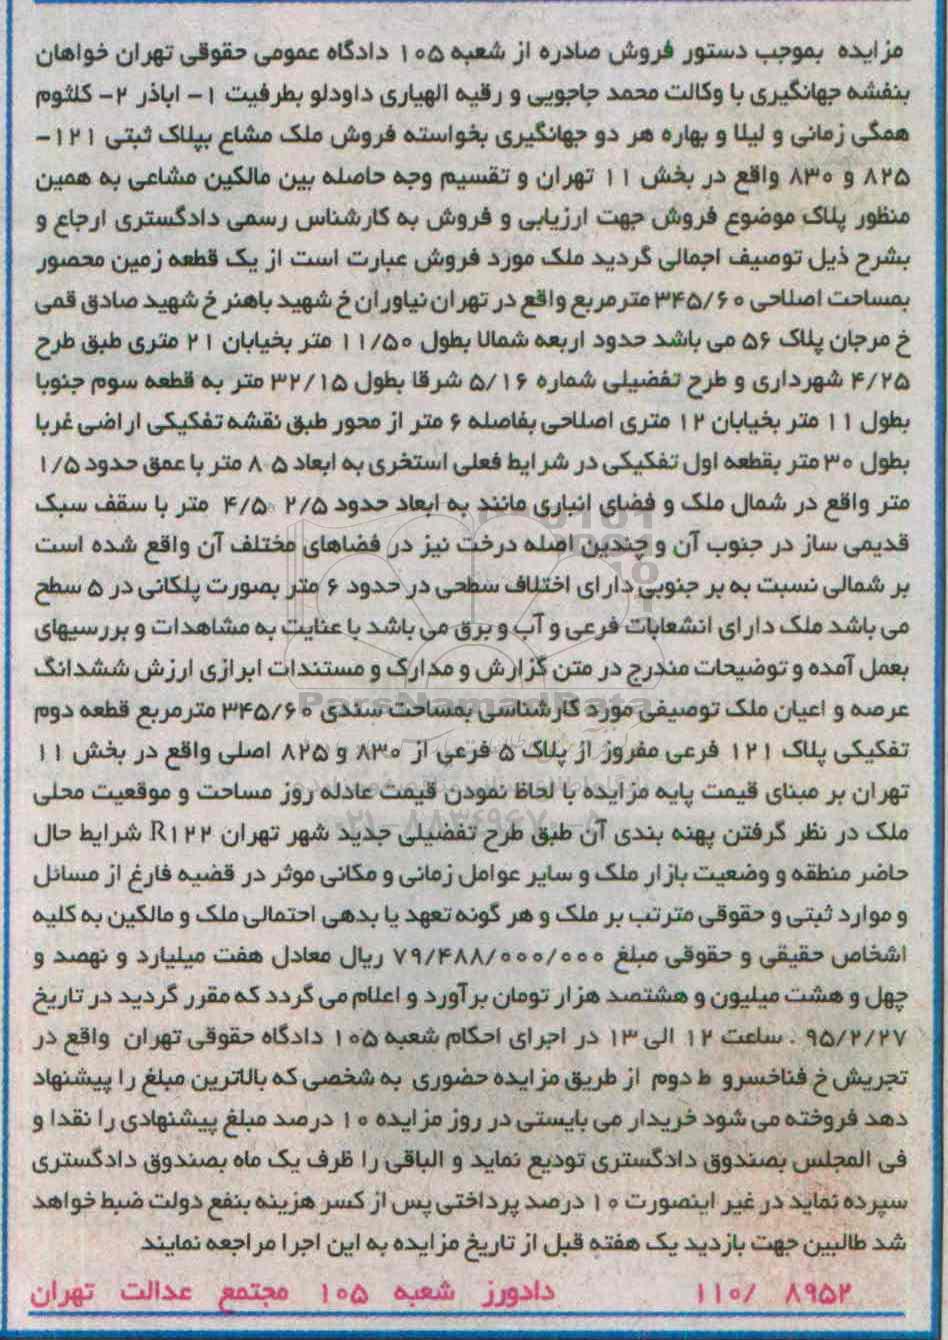 مزایده بموجب دستور فروش صادره از شعبه ۱۰۵ دادگاه عمومی حقوقی تهران خواهان
بنفشه جهانگیری با وکالت محمد جاجویی و رقیه الهیاری داودلو بطرفیت ۱- اباذر ۲- کلثوم
همگی زمانی و لیلا و بهاره هر دو جهانگیری بخواسته فروش ملک مشاع بپلاک ثبتی ۱۲۱-
۸۲۵ و ۸۳۰ واقع در بخش ۱۱ تهران و تقسیم وجه حاصله بین مالکین مشاعی به همین
منظور پلاک موضوع فروش جهت ارزیابی و فروش به کارشناس رسمی دادگستری ارجاع و
بشرح ذیل توصیف اجمالی گردید ملک مورد فروش عبارت است از یک قطعه زمین محصور
بمساحت اصلاحی ۳۴۵/۶۰ مترمربع واقع در تهران نیاوران خ شهید باهنر خ شهید صادق قمی
خ مرجان پلاک ۵۶ می باشد حدود اربعه شمالا بطول ۱۱/۵۰ متر بخیابان ۲۱ متری طبق طرح
۴/۲۵ شهرداری و طرح تفضیلی شماره ۵/۱۶ شرقا بطول ۳۲/۱۵ متر به قطعه سوم جنوبا
بطول ۱۱ متر بخیابان ۱۲ متری اصلاحی بفاصله ۶ متر از محور طبق نقشه تفکیکی اراضی غربا
بطول ۳۰ متر بقطعه اول تفکیکی در شرایط فعلی استخری به ابعاد ۵ ۸ متر با عمق حدود ۱/۵
متر واقع در شمال ملک و فضای انباری مانند به ابعاد حدود ۲/۵ ۴/۵ متر با سقف سبک
قدیمی ساز در جنوب آن و چندین اصله درخت نیز در فضاهای مختلف آن واقع شده است
بر شمالی نسبت به بر جنوبی دارای اختلاف سطحی در حدود ۶ متر بصورت پلکانی در ۵ سطح
می باشد ملک دارای انشعابات فرعی و آب و برق می باشد با عنایت به مشاهدات و بررسیهای
بعمل آمده و توضیحات مندرج در متن گزارش و مدارک و مستندات ابرازی ارزش ششدانگ
عرصه و اعیان ملک توصیفی مورد کارشناسی بمساحت سندی ۳۴۵/۶۰ مترمربع قطعه دوم
تفکیکی پلاک ۱۲۱ فرعی مفروز از پلاک ۵ فرعی از ۸۳۰ و ۸۲۵ اصلی واقع در بخش ۱۱
تهران بر مبنای قیمت پایه مزایده با لحاظ نمودن قیمت عادله روز مساحت و موقعیت محلی
ملک در نظر گرفتن پهنه بندی آن طبق طرح تفضیلی جدید شهر تهران R۱۲۲ شرایط حال
حاضر منطقه و وضعیت بازار ملک و سایر عوامل زمانی و مکانی موثر در قضیه فارغ از مسائل
و موارد ثبتی و حقوقی مترتب بر ملک و هر گونه تعهد یا بدهی احتمالی ملک و مالکین به کلیه
اشخاص حقیقی و حقوقی مبلغ ۷۹/۴۸۸/۰۰۰/۰۰۰ ریال معادل هفت میلیارد و نهصد و
چهل و هشت میلیون و هشتصد هزار تومان برآورد و اعلام می گردد که مقرر گردید در تاریخ
۹۵/۲/۲۷ . ساعت ۱۲ الی ۱۳ در اجرای احکام شعبه ۱۰۵ دادگاه حقوقی تهران واقع در
تجریش خ فناخسرو ط دوم از طریق مزایده حضوری به شخصی که بالاترین مبلغ را پیشنهاد
دهد فروخته می شود خریدار می بایستی در روز مزایده ۱۰ درصد مبلغ پیشنهادی را نقدا و
فی المجلس بصندوق دادگستری تودیع نماید و الباقی را ظرف یک ماه بصندوق دادگستری
سپرده نماید در غیر اینصورت ۱۰ درصد پرداختی پس از کسر هزینه بنفع دولت ضبط خواهد
شد طالبین جهت بازدید یک هفته قبل از تاریخ مزایده به این اجرا مراجعه نمایند
۸۹۵۲ /۱۱۰ دادورز شعبه ۱۰۵ مجتمع عدالت تهران
ParsNamadData
۰۲۱-۸۸۳۴۹۶۷۰-۵